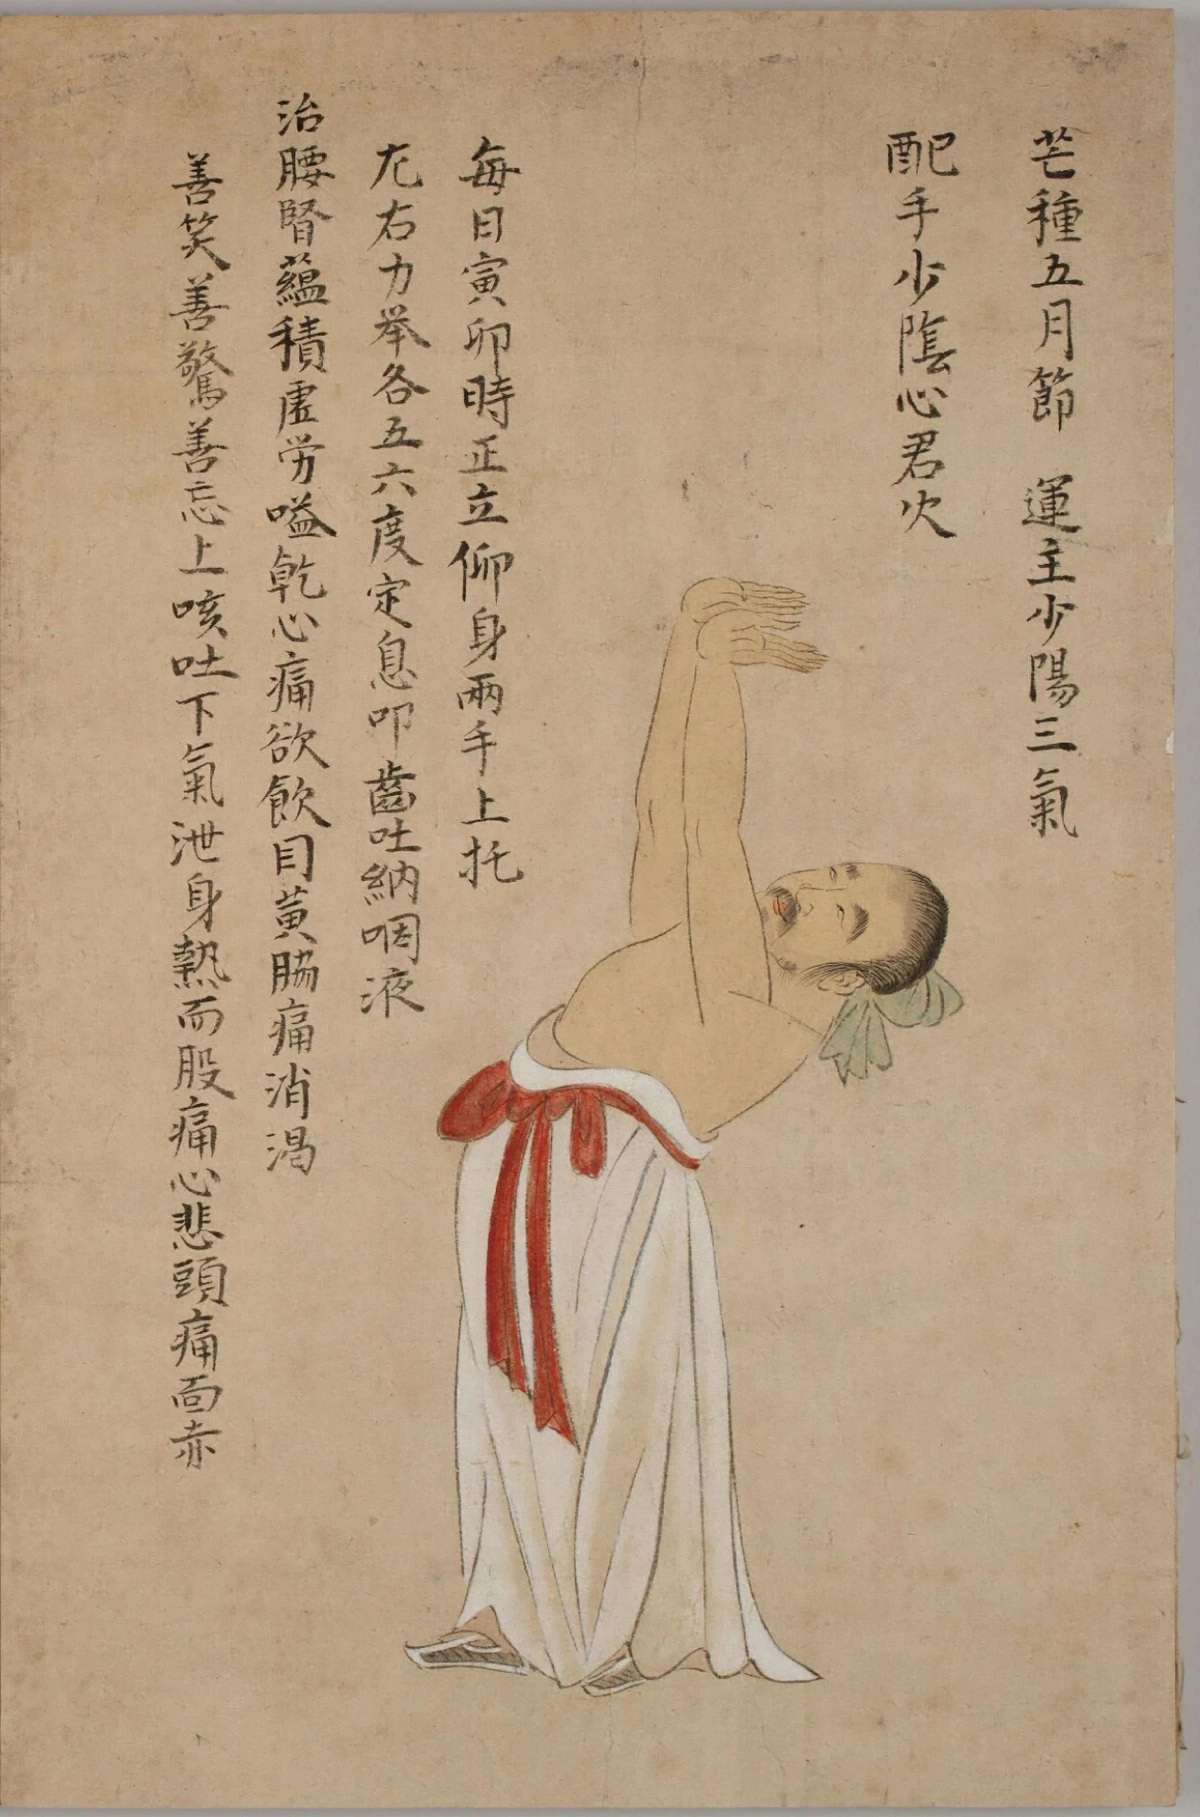 芒種五月節　運主少陽三氣
配手少陰心君火
每日寅卯時正立仰身兩手上托
尢右力举各五六度定息叩齒吐納咽液
治腰腎蘊積虛労嗌乾心痛欲飲目黃脇痛消渴
善笑善驚善忘上咳吐下氣泄身熱而股痛心悲頭痛面赤